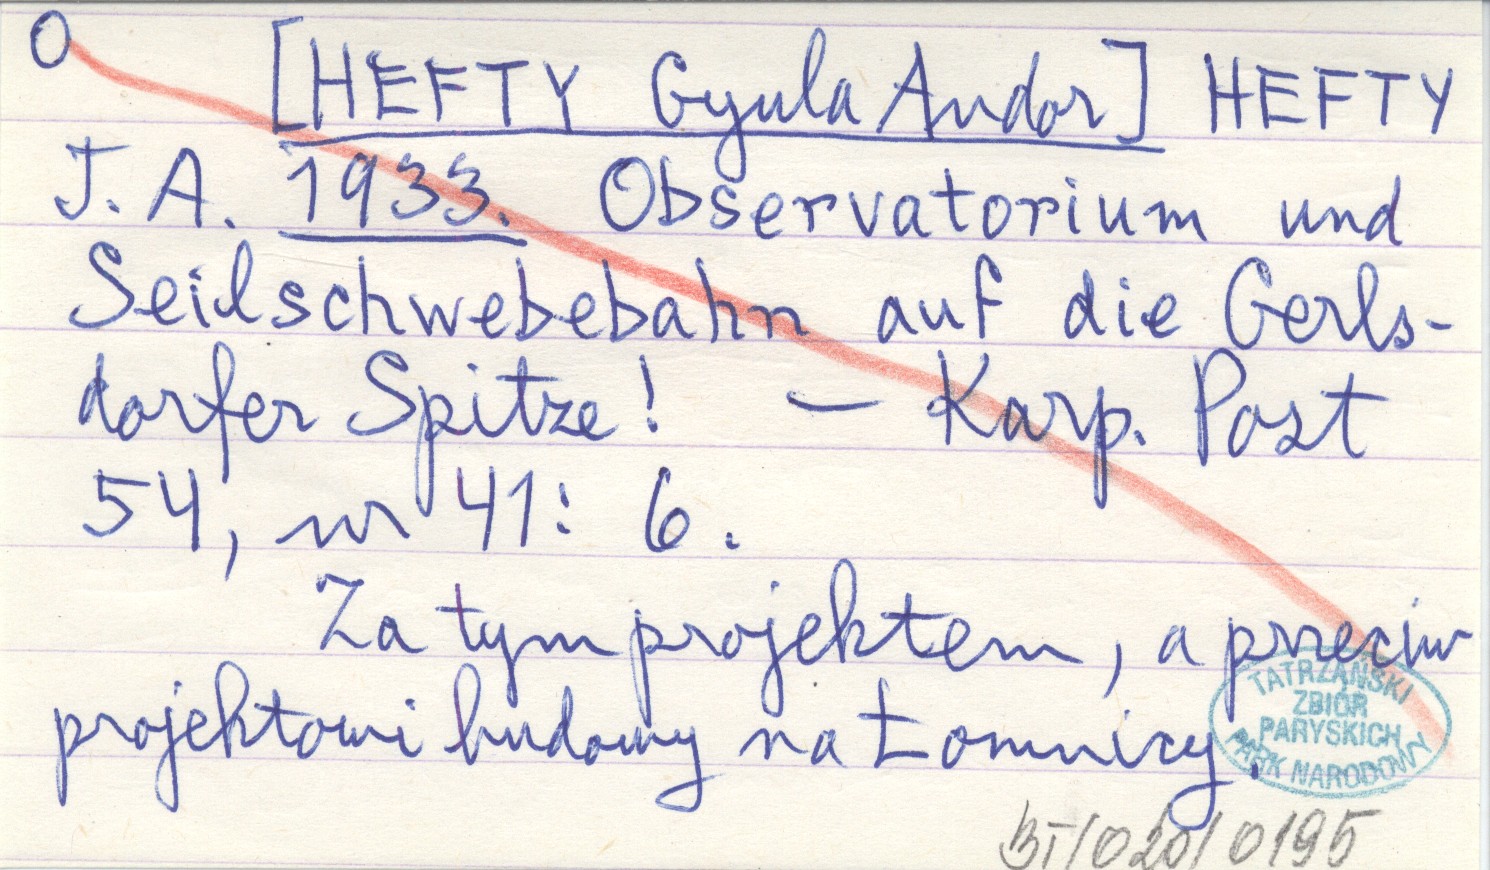 O [HEFTY Gyula Andor] HEFTY
J. A. 1933. Observatorium und
Seilschwebebahn auf die Gerls-
dorfer Spitze! — Karp. Post
54, nr 41: 6.
Za tym projektem, a przeciw
projektowi budowy na Łomnicy.
TATRZAŃSKI
ZBIÓR
PARYSKICH
PARK NARODOWY
BT/020/0195